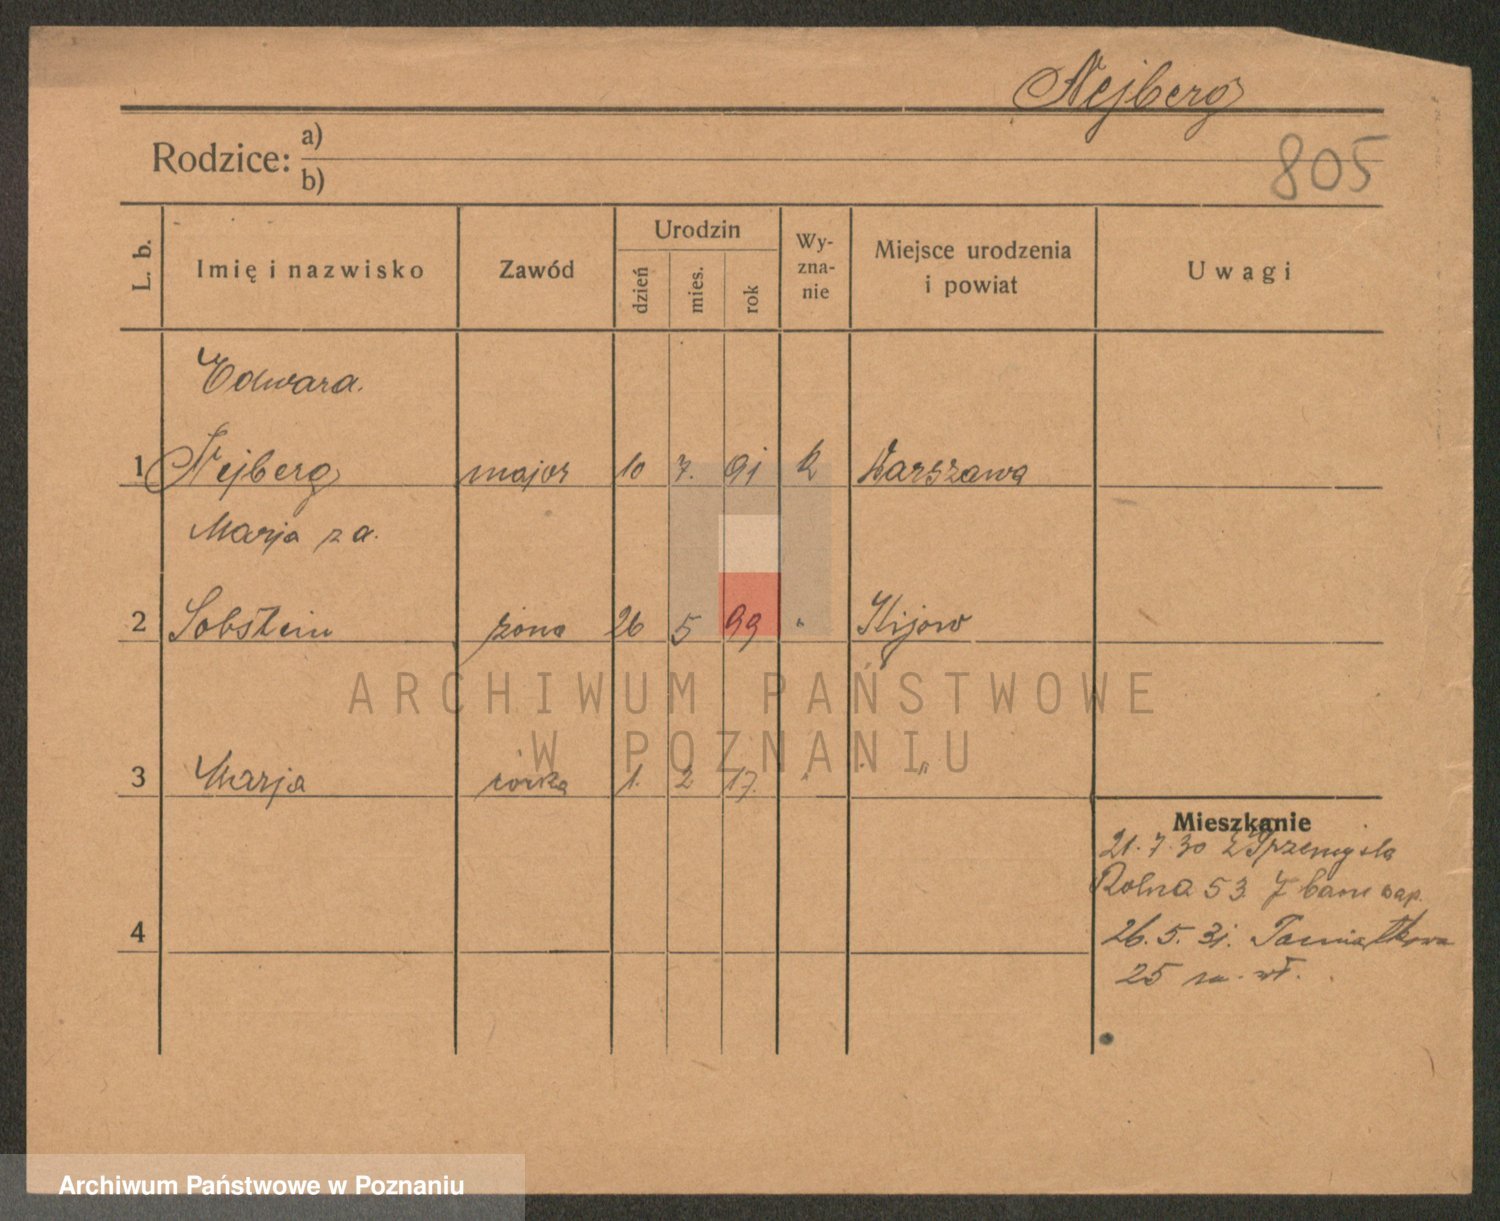 Nejberg
805
Rodzice: a)
b)
L. b.
Imię i nazwisko
Zawód
Urodzin
dzień
mies.
rok
Wy-
zna-
nie
Miejsce urodzenia
i powiat
Uwagi
Edward
1 Nejberg major 10 7. 91 k Warszawa
Marja z d.
2 Sobstein żona 26 5 99 " Kijow
3 Marja córka 1. 2 17. " "
Mieszkanie
21.7.30 z Przemyśla
Rolna 53. 7 baon sap.
4
26.5.31. Pamiątkowa
25 wł.
ARCHIWUM PAŃSTWOWE
W POZNANIU
Archiwum Państwowe w Poznaniu